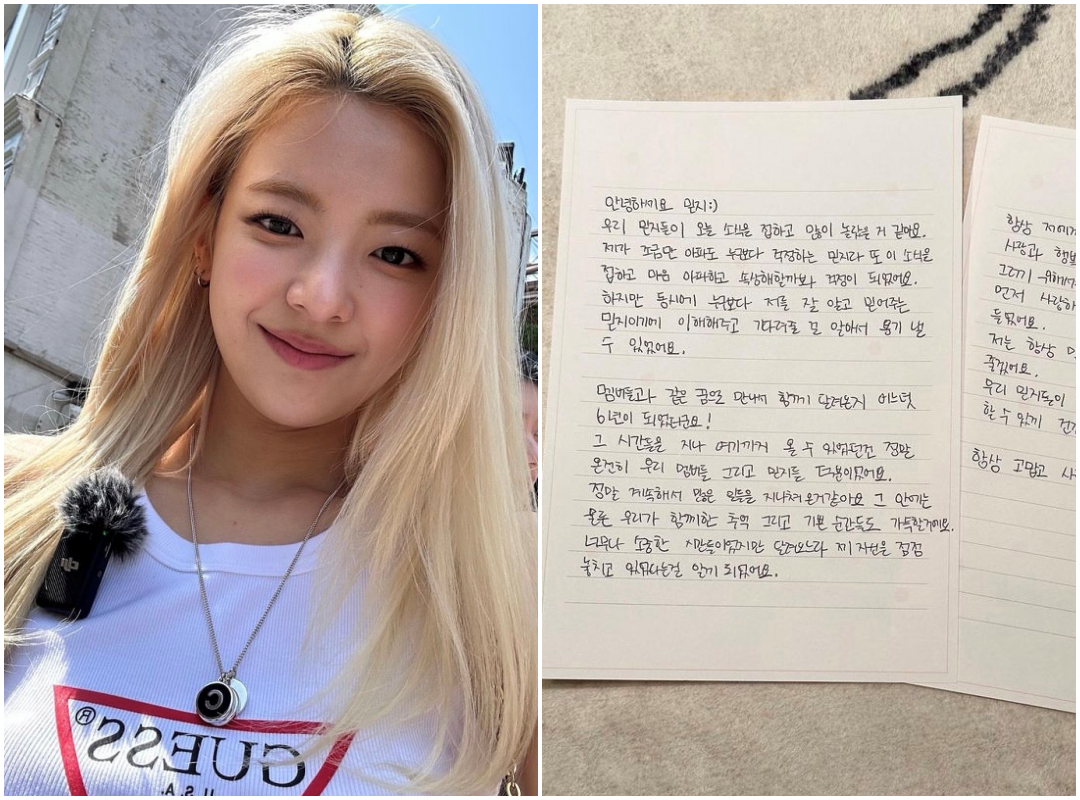 GUESS®
U.S.A.
안녕하세요 믿지:)
우리 믿지들이 오늘 소식을 접하고 많이 놀랐을 거 같아요.
제가 조금만 아파도 누구보다 걱정하는 믿지라 또 이 소식을
접하고 마음 아파하고 속상해할까봐 걱정이 되었어요.
하지만 동시에 누구보다 저를 잘 알고 믿어주는
믿지이기에 이해해주고 기다려줄 걸 알아서 용기 낼
수 있었어요.
멤버들과 같은 꿈으로 만나서 함께 달려온지 어느덧
6년이 되었더군요!
그 시간들을 지나 여기까지 올 수 있었던건 정말
온전히 우리 멤버들 그리고 믿지들 덕분이었어요.
정말 계속해서 많은 일들을 지나쳐 온거같아요 그 안에는
물론 우리가 함께한 추억 그리고 기쁜 순간들도 가득할거에요.
너무나 소중한 시간들이었지만 달려오느라 제 자신을 점점
놓치고 있었다는걸 알게 되었어요.
항상 저에게
사랑과 행복
그대가
먼저 사랑하
들었어요.
저는 항상
좋겠어요.
우리 믿지들이
할 수 있게
항상 고맙고 사